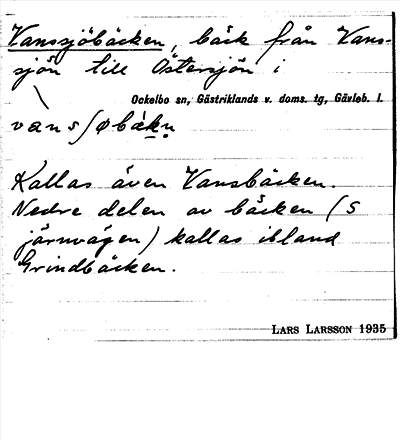 Vanssjöbäcken, bäck från Vans-
sjön till Östersjön i
Ockelbo sn, Gästriklands v. doms. tg, Gävleb. l.
Kallas även Vansbäcken.
Nedre delen av bäcken (s
järnvägen) kallas ibland
Grindbäcken.
LARS LARSSON 1935